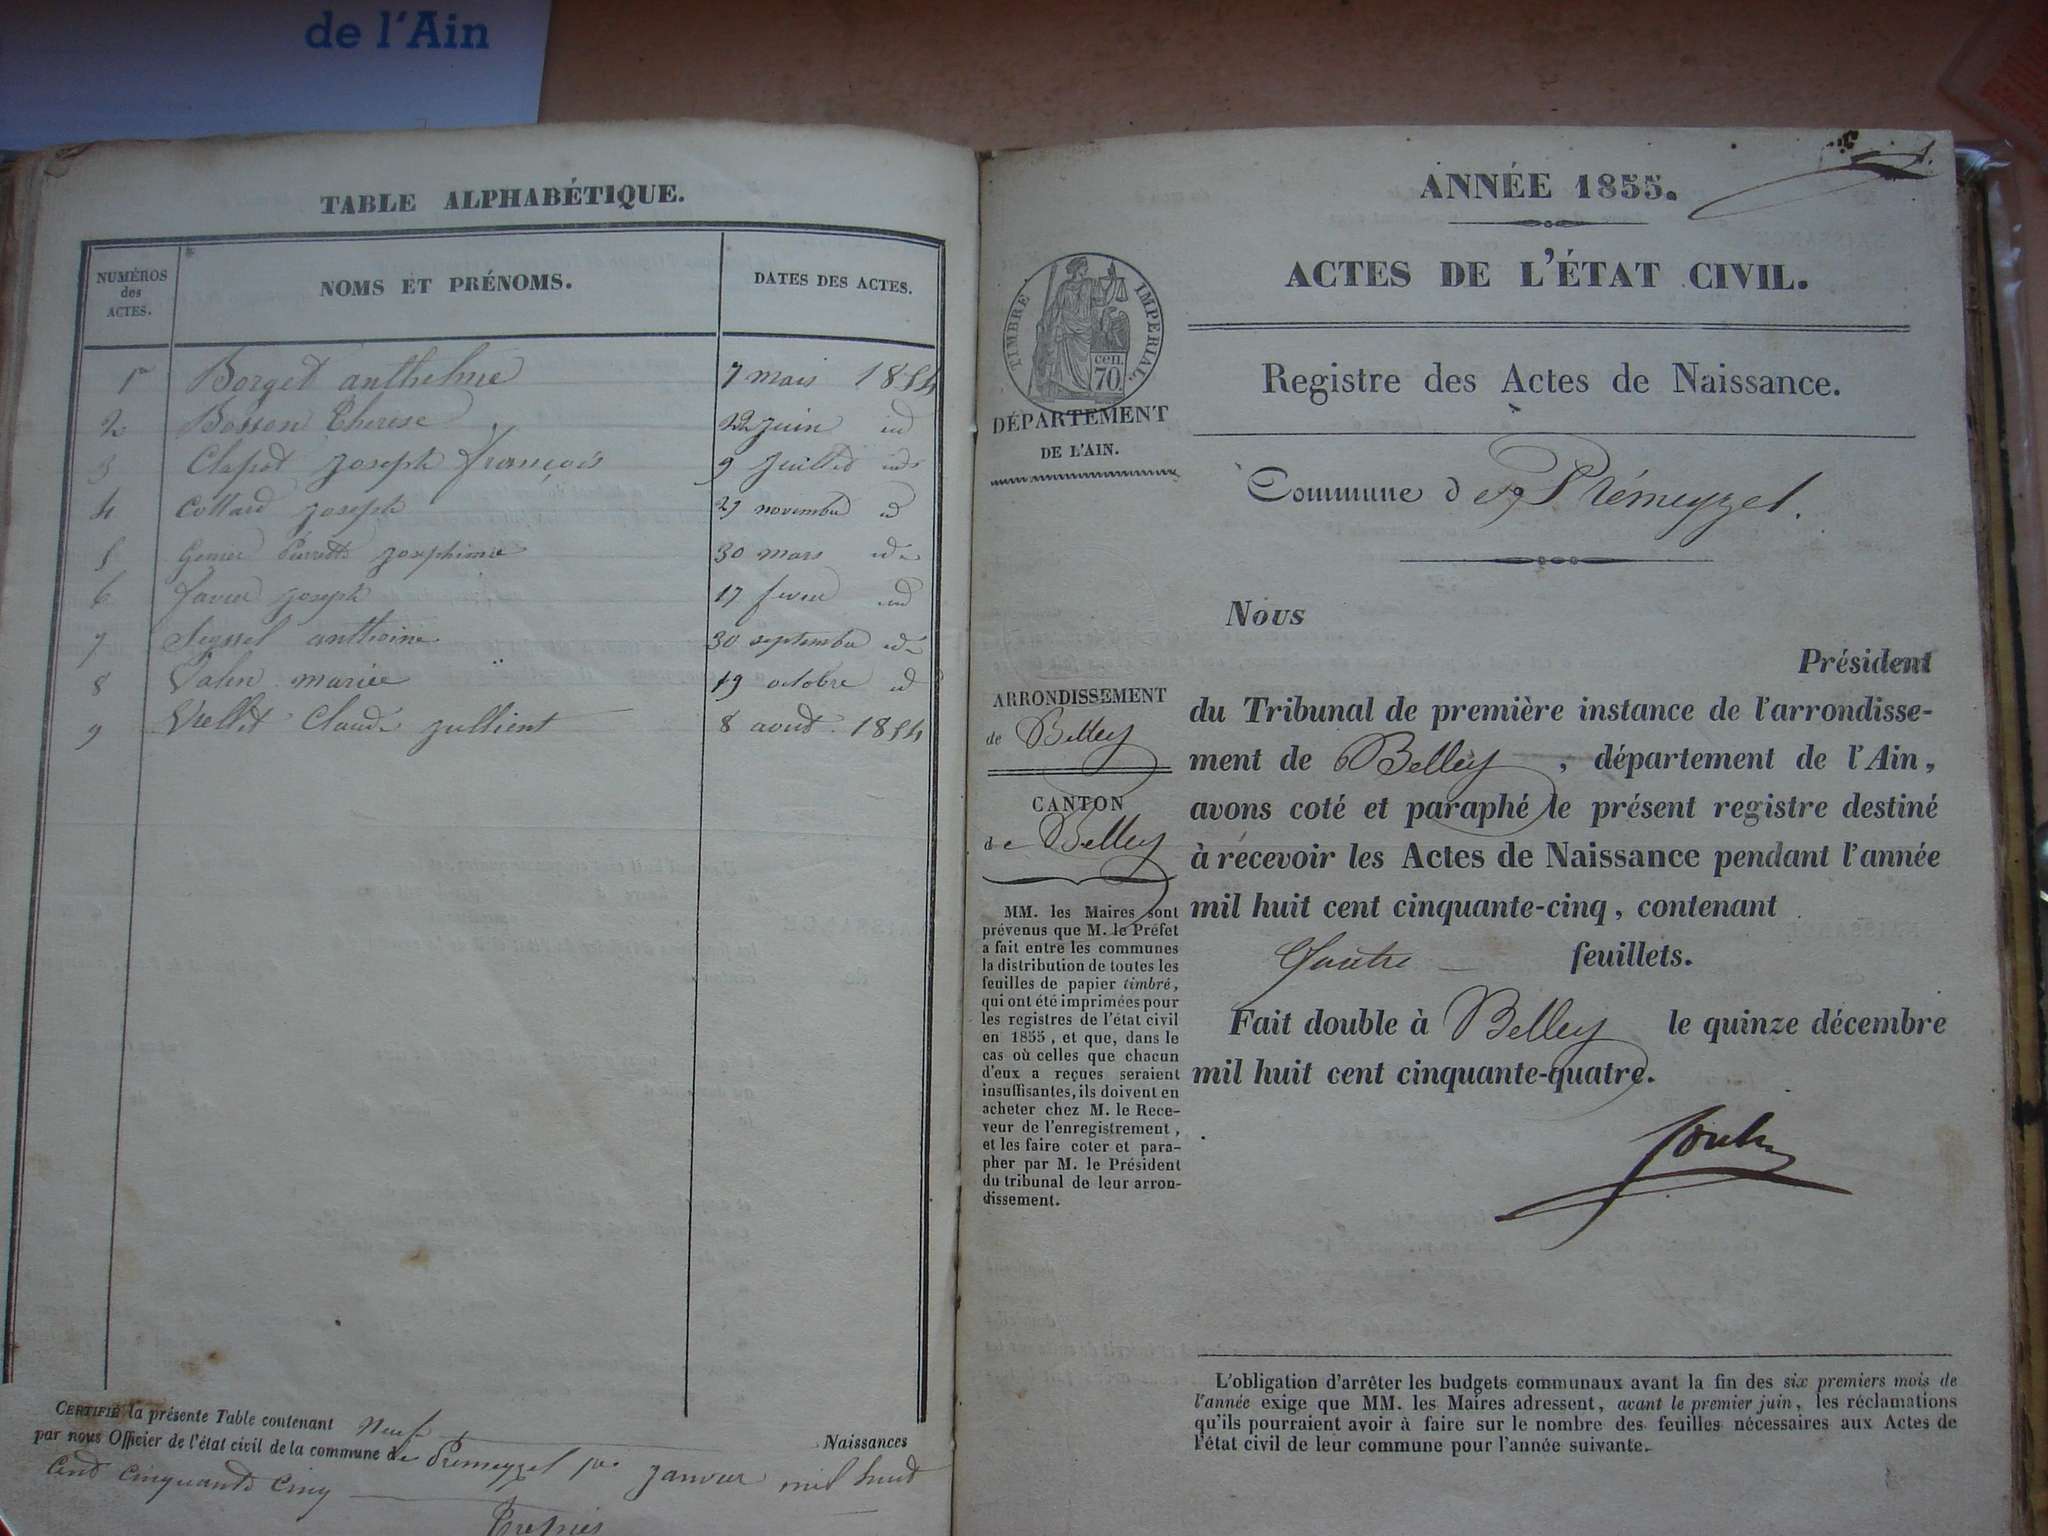 de l'Ain
TABLE ALPHABÉTIQUE.
NUMÉROS des ACTES.
NOMS ET PRÉNOMS.
DATES DES ACTES.
1er Borget anthelme 7 mars 1854
2 Bosson Therese 22 juin id
3 Clapot joseph françois 9 juillet id
4 Collard joseph 29 novembre id
5 pierrette josephinne 30 mars id
6 joseph 17 id
7 Seyssel antheine 30 septembre id
8 mariee 19 octobre id
9 Claude jullient 8 aout 1854
CERTIFIÉ la présente Table contenant neuf Naissances
par nous Officier de l'état civil de la commune de Premeyzel 1er janvier mil huit
cent cinquante cinq
ANNÉE 1855.
ACTES DE L'ÉTAT CIVIL.
Registre des Actes de Naissance.
Commune de Prémeyzel.
TIMBRE IMPÉRIAL.
cen.
70
DÉPARTEMENT
DE L'AIN.
ARRONDISSEMENT
de Belley
CANTON
de Belley
MM. les Maires sont
prévenus que M. le Préfet
a fait entre les communes
la distribution de toutes les
feuilles de papier timbré,
qui ont été imprimées pour
les registres de l'état civil
en 1855, et que, dans le
cas où celles que chacun
d'eux a reçues seraient
insuffisantes, ils doivent en
acheter chez M. le Rece-
veur de l'enregistrement,
et les faire coter et para-
pher par M. le Président
du tribunal de leur arron-
dissement.
Nous
Président
du Tribunal de première instance de l'arrondisse-
ment de Belley, département de l'Ain,
avons coté et paraphé le présent registre destiné
à recevoir les Actes de Naissance pendant l'année
mil huit cent cinquante-cinq, contenant
Quatre feuillets.
Fait double à Belley le quinze décembre
mil huit cent cinquante-quatre.
L'obligation d'arrêter les budgets communaux avant la fin des six premiers mois de
l'année exige que MM. les Maires adressent, avant le premier juin, les réclamations
qu'ils pourraient avoir à faire sur le nombre des feuilles nécessaires aux Actes de
l'état civil de leur commune pour l'année suivante.